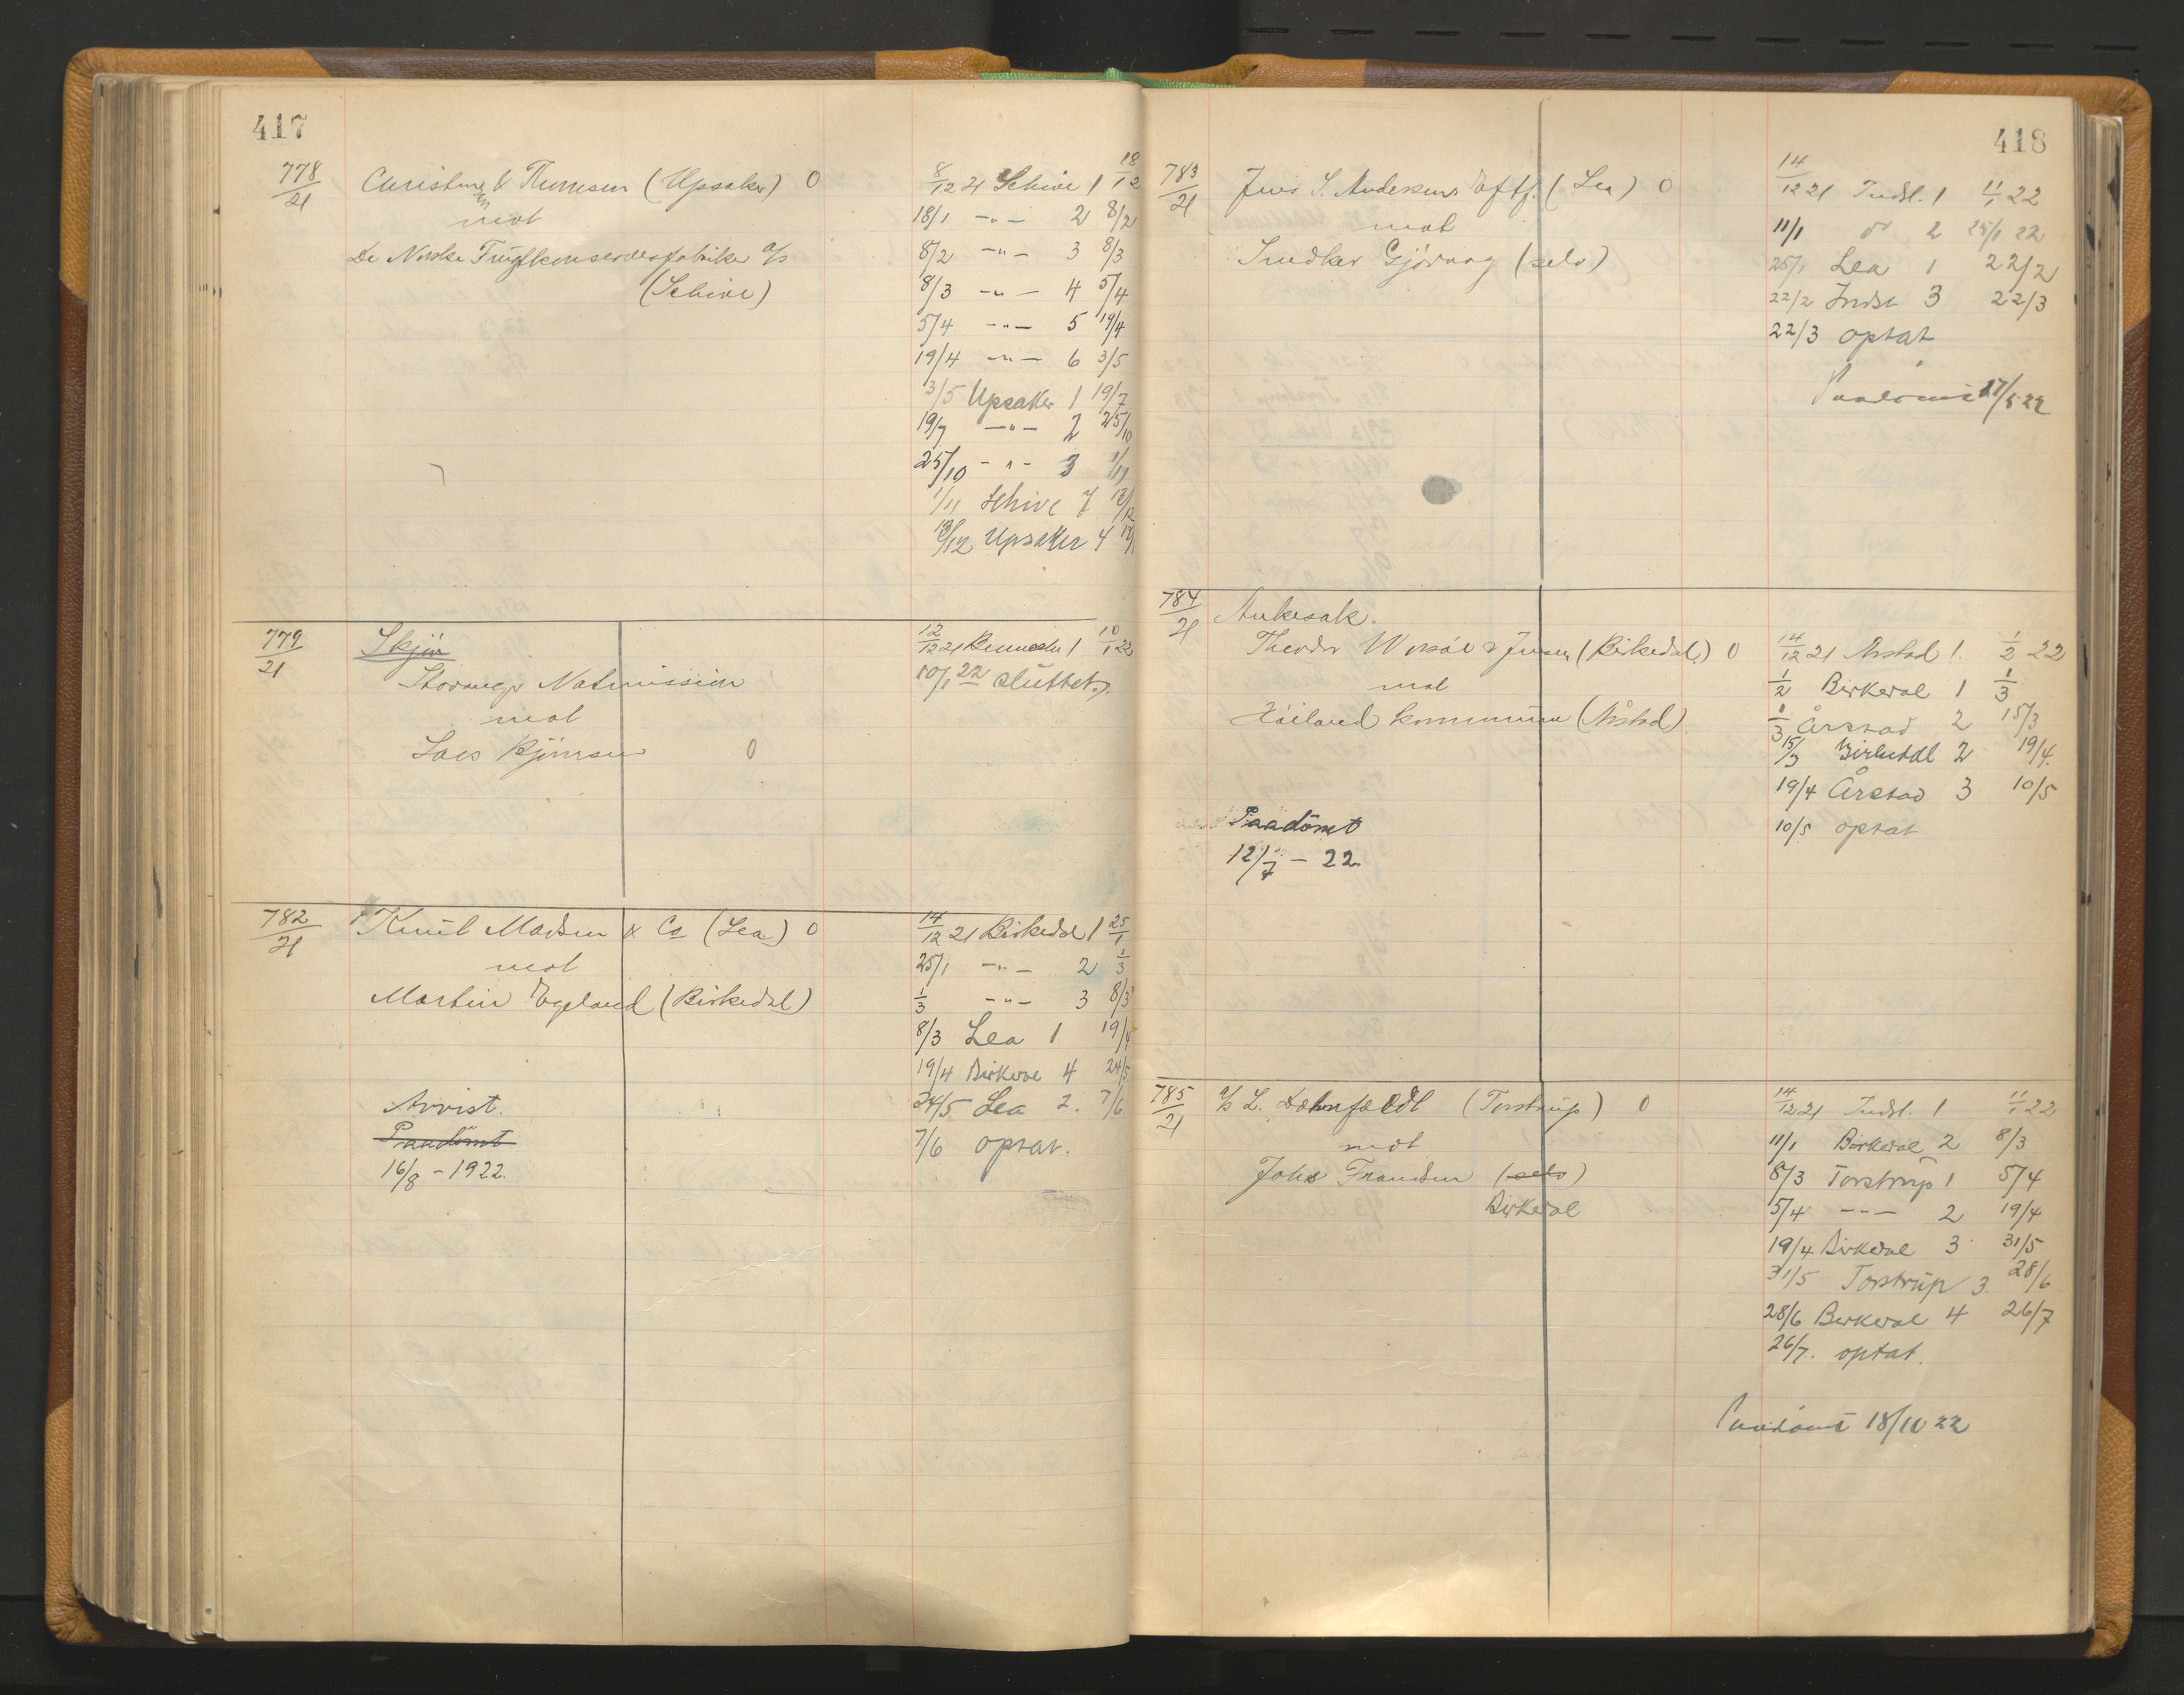 417
778/21 Christensen & Thomsen (Upsaker) 0
mot
De Norske Frugtkonservesfabriker A/S
(Schive)
8/12 21 Schive 1 18/12
18/1 -"- 2 8/2
8/2 -"- 3 8/3
8/3 -"- 4 5/4
5/4 -"- 5 19/4
19/4 -"- 6 3/5
3/5 Upsaker 1 19/7
19/7 -"- 2 25/10
25/10 -"- 3 1/11
1/11 Schive 7 13/12
13/12 Upsaker 4
779/21 Skjön
Stavanger
mot
Lars Björnsen 0
12/12 21 1 10/1 22
10/1 22 sluttet.
782/21 Knut Madsen & Co (Lea) 0
mot
Martin Egeland (Birkedal)
Avvist.
Paadömt
16/8 - 1922.
14/12 21 Birkedal 1 25/1
25/1 -"- 2 1/3
1/3 -"- 3 8/3
8/3 Lea 1 19/4
19/4 Birkedal 4 24/5
24/5 Lea 2. 7/6
7/6 optat.
418
783/21 Jens S. Andersens Eftf. (Lea) 0
mot
Gjörvag (selv)
14/12 21 Indst. 1 11/1 22
11/1 do 2 25/1 22
25/1 Lea 1 22/2
22/2 Indst 3 22/3
22/3 optat
Paadömt 27/5 22
784/21 Ankesak.
Theodor Worsöe & Jensen (Birkedal) 0
mot
Höiland kommune (Årstad)
Paadömt
12/7 - 22.
14/12 21 Årstad 1. 1/2 22
1/2 Birkedal 1 1/3
1/3 Årstad 2 15/3
15/3 Birkedal 2 19/4.
19/4 Årstad 3 10/5
10/5 optat
785/21 A/S L. Dehnfeldt (Torstrup) 0
mot
John Frandsen (selv)
Birkedal
14/12 21 Indst. 1 11/1 22
11/1 Birkedal 2 8/3
8/3 Torstrup 1 5/4
5/4 -"- 2 19/4
19/4 Birkedal 3 31/5
31/5 Torstrup 3. 28/6
28/6 Birkedal 4 26/7
26/7. optat.
Paadömt 18/10 22